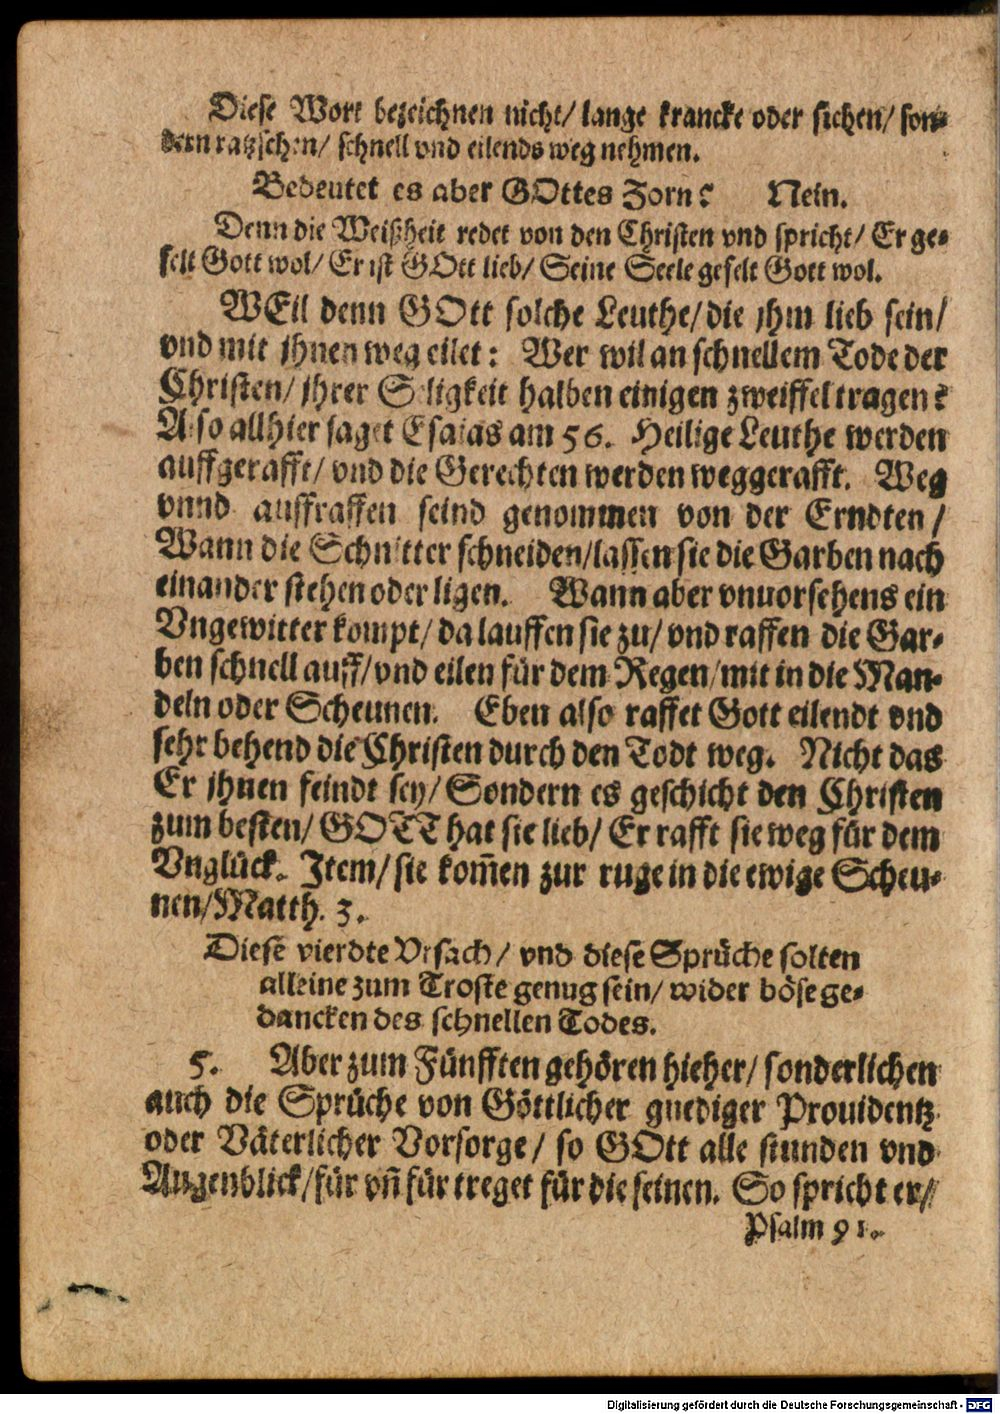 Diese Wort bezeichnen nicht/ lange krancke oder sichen/ son-
dern ratzschen/ schnell vnd eilends weg nehmen.
Bedeutet es aber GOttes Zorn? Nein.
Denn die Weißheit redet von den Christen vnd spricht/ Er ge-
felt Gott wol/ Er ist GOtt lieb/ Seine Seele gefelt Gott wol.
WEil denn GOtt solche Leuthe/ die jhm lieb sein/
vnd mit jhnen weg eilet: Wer wil an schnellem Tode der
Christen/ jhrer Seligkeit halben einigen zweiffel tragen?
Also allhier saget Esaias am 56. Heilige Leuthe werden
auffgerafft/ vnd die Gerechten werden weggerafft. Weg
vnnd auffraffen seind genommen von der Erndten/
Wann die Schnitter schneiden/ lassen sie die Garben nach
einander stehen oder ligen. Wann aber vnuorsehens ein
Vngewitter kompt/ da lauffen sie zu/ vnd raffen die Gar-
ben schnell auff/ vnd eilen für dem Regen/ mit in die Man-
deln oder Scheunen. Eben also raffet Gott eilendt vnd
sehr behend die Christen durch den Todt weg. Nicht das
Er jhnen feindt sey/ Sondern es geschicht den Christen
zum besten/ GOTT hat sie lieb/ Er rafft sie weg für dem
Vnglück. Item/ sie kom̃en zur ruge in die ewige Scheu-
nen/ Matth. 3.
Diese vierdte Vrsach/ vnd diese Sprüche solten
alleine zum Troste genug sein/ wider böse ge-
dancken des schnellen Todes.
5. Aber zum Fünfften gehören hieher/ sonderlichen
auch die Sprüche von Göttlicher gnediger Prouidentz
oder Väterlicher Vorsorge/ so GOtt alle stunden vnd
Augenblick/ für vn̄ für treget für die seinen. So spricht er/
Psalm 91.
Digitalisierung gefördert durch die Deutsche Forschungsgemeinschaft - DFG